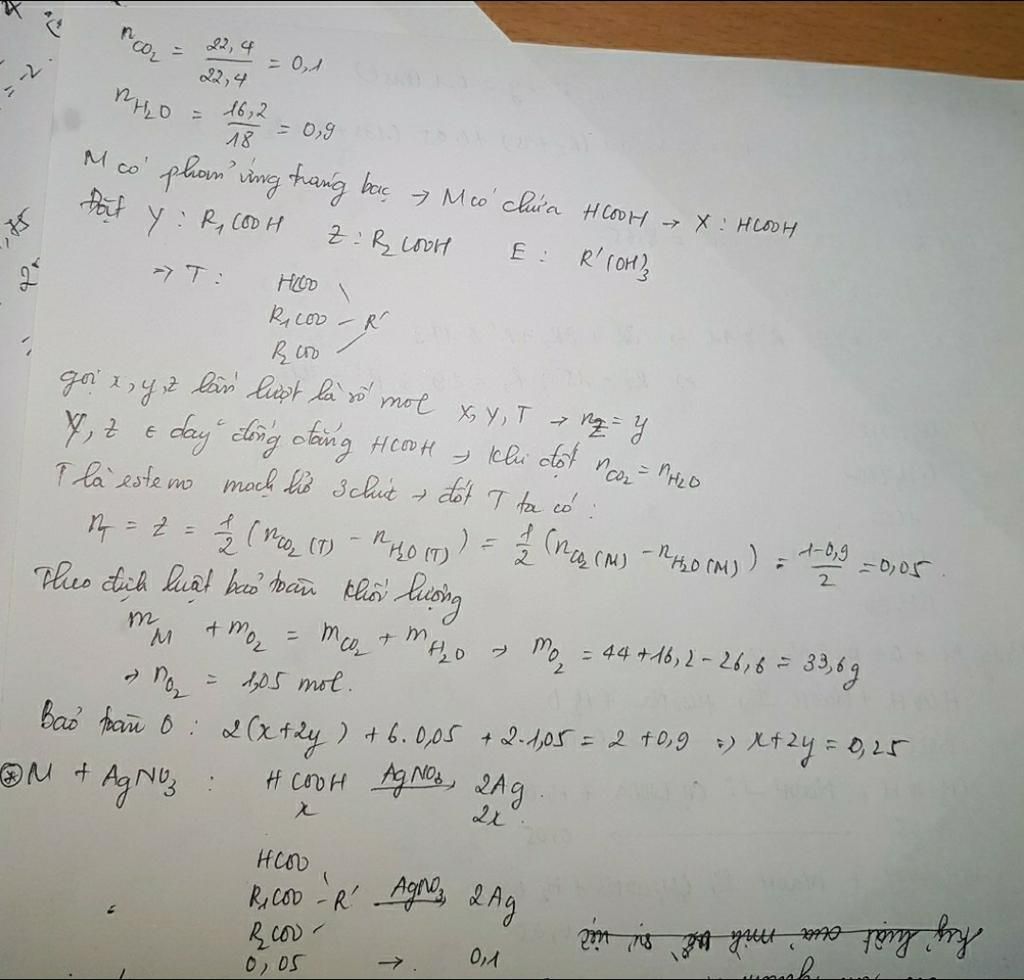 n_CO2 = 22,4/22,4 = 0,1
n_H2O = 16,2/18 = 0,9
M có phản ứng tráng bạc → M có chứa HCOOH → X : HCOOH
Đặt Y : R1COOH Z : R2COOH E : R'(OH)3
=> T : HCOO
R1COO - R'
R2COO
gọi x, y, z lần lượt là số mol X, Y, T → n_Z = y
Y, Z ∈ dãy đồng đẳng HCOOH → Khi đốt n_CO2 = n_H2O
T là este no mạch hở 3 chức → đốt T ta có :
n_T = z = 1/2 (n_CO2 (T) - n_H2O (T)) = 1/2 (n_CO2 (M) - n_H2O (M)) = 1-0,9/2 = 0,05
Theo định luật bảo toàn khối lượng
m_M + m_O2 = m_CO2 + m_H2O → m_O2 = 44 + 16,2 - 26,6 = 33,6g
→ n_O2 = 1,05 mol.
Bảo toàn O : 2(x+2y) + 6.0,05 + 2.1,05 = 2 + 0,9 => x + 2y = 0,25
* M + AgNO3 : HCOOH AgNO3→ 2Ag
x 2x
HCOO
R1COO - R' AgNO3→ 2Ag
R2COO
0,05 → 0,1